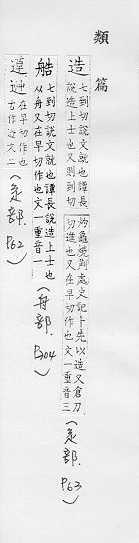 類
篇
造
七到切說文就也譚長
說造上士也又則到切
灼龜燒荆處史記卜先以造又倉刀
切進也又在早切作也文一重音三
(辵部.P63)
艁
七到切說文就也譚長說造上士也
从舟又在早切作也文一重音一
(舟部.P304)
艁
在早切作也
古作
文二
(辵部.P62)